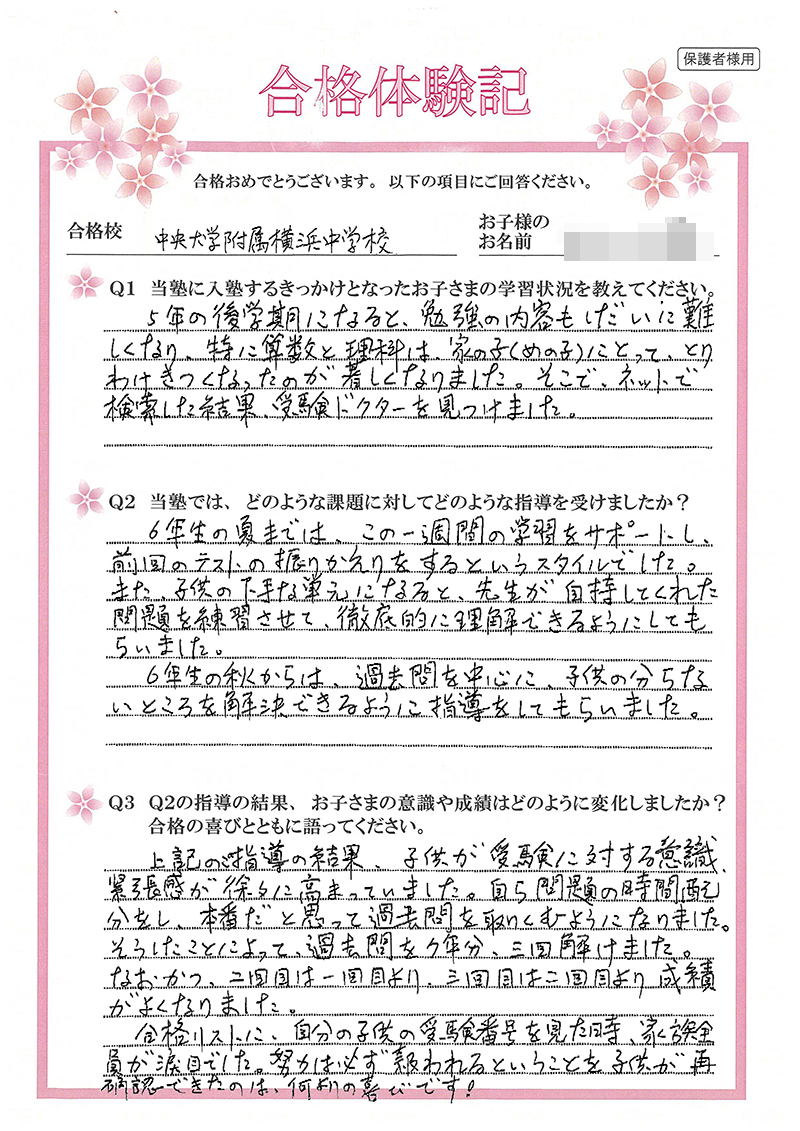 保護者様用
合格体験記
合格おめでとうございます。以下の項目にご回答ください。
合格校 中央大学附属横浜中学校
お子様の
お名前
Q1 当塾に入塾するきっかけとなったお子さまの学習状況を教えてください。
5年の後学期になると、勉強の内容もしだいに難
しくなり、特に算数と理科は、家の子(めの子)にとって、とり
わけきつくなったのが著しくなりました。そこで、ネットで
検索した結果、受験ドクターを見つけました。
Q2 当塾では、どのような課題に対してどのような指導を受けましたか？
6年生の夏までは、この一週間の学習をサポートし、
前回のテストの振りかえりをするというスタイルでした。
また、子供の下手な単元になると、先生が自持してくれた
問題を練習させて、徹底的に理解できるようにしても
らいました。
6年生の秋からは、過去問を中心に、子供の分らな
いところを解決できるように指導をしてもらいました。
Q3 Q2の指導の結果、お子さまの意識や成績はどのように変化しましたか？
合格の喜びとともに語ってください。
上記の指導の結果、子供が受験に対する意識、
緊張感が徐々に高まっていました。自ら問題の時間配
分をし、本番だと思って過去問を取りくむようになりました。
そうしたことによって、過去問を7年分、三回解けました。
なおかつ、二回目は一回目より、三回目は二回目より成績
がよくなりました。
合格リストに、自分の子供の受験番号を見た時、家族全
員が涙目でした。努力は必ず報われるということを子供が再
確認できたのは、何よりの喜びです！